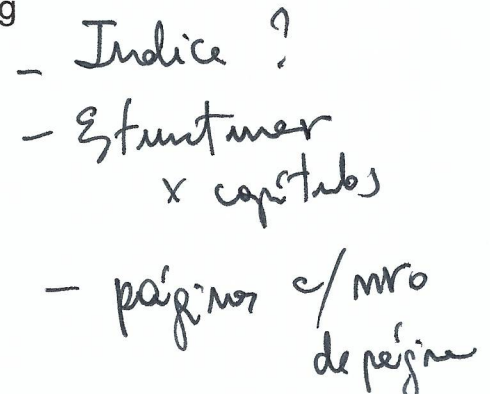 g
- Indice ?
- Estructurar
x capítulos
- páginas c/ nro
de página